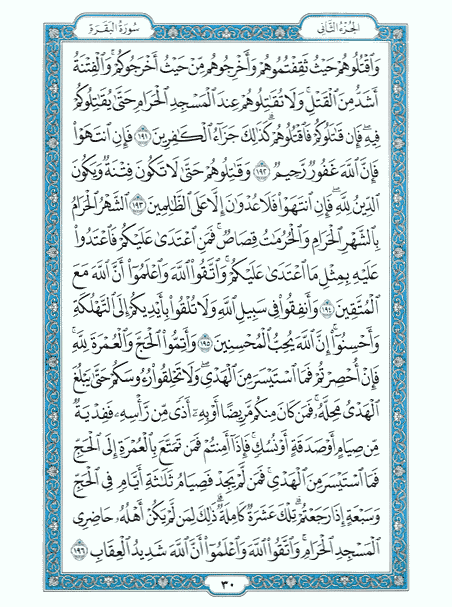 الجزء الثاني
سورة البقرة
وَٱقْتُلُوهُمْ حَيْثُ ثَقِفْتُمُوهُمْ وَأَخْرِجُوهُم مِّنْ حَيْثُ أَخْرَجُوكُمْ ۚ وَٱلْفِتْنَةُ
أَشَدُّ مِنَ ٱلْقَتْلِ ۚ وَلَا تُقَٰتِلُوهُمْ عِندَ ٱلْمَسْجِدِ ٱلْحَرَامِ حَتَّىٰ يُقَٰتِلُوكُمْ
فِيهِ ۖ فَإِن قَٰتَلُوكُمْ فَٱقْتُلُوهُمْ ۗ كَذَٰلِكَ جَزَآءُ ٱلْكَٰفِرِينَ ١٩١ فَإِنِ ٱنتَهَوْا۟
فَإِنَّ ٱللَّهَ غَفُورٌ رَّحِيمٌ ١٩٢ وَقَٰتِلُوهُمْ حَتَّىٰ لَا تَكُونَ فِتْنَةٌ وَيَكُونَ
ٱلدِّينُ لِلَّهِ ۖ فَإِنِ ٱنتَهَوْا۟ فَلَا عُدْوَٰنَ إِلَّا عَلَى ٱلظَّٰلِمِينَ ١٩٣ ٱلشَّهْرُ ٱلْحَرَامُ
بِٱلشَّهْرِ ٱلْحَرَامِ وَٱلْحُرُمَٰتُ قِصَاصٌ ۚ فَمَنِ ٱعْتَدَىٰ عَلَيْكُمْ فَٱعْتَدُوا۟
عَلَيْهِ بِمِثْلِ مَا ٱعْتَدَىٰ عَلَيْكُمْ ۚ وَٱتَّقُوا۟ ٱللَّهَ وَٱعْلَمُوٓا۟ أَنَّ ٱللَّهَ مَعَ
ٱلْمُتَّقِينَ ١٩٤ وَأَنفِقُوا۟ فِى سَبِيلِ ٱللَّهِ وَلَا تُلْقُوا۟ بِأَيْدِيكُمْ إِلَى ٱلتَّهْلُكَةِ ۛ
وَأَحْسِنُوٓا۟ ۛ إِنَّ ٱللَّهَ يُحِبُّ ٱلْمُحْسِنِينَ ١٩٥ وَأَتِمُّوا۟ ٱلْحَجَّ وَٱلْعُمْرَةَ لِلَّهِ ۚ
فَإِنْ أُحْصِرْتُمْ فَمَا ٱسْتَيْسَرَ مِنَ ٱلْهَدْىِ ۖ وَلَا تَحْلِقُوا۟ رُءُوسَكُمْ حَتَّىٰ يَبْلُغَ
ٱلْهَدْىُ مَحِلَّهُۥ ۚ فَمَن كَانَ مِنكُم مَّرِيضًا أَوْ بِهِۦٓ أَذًى مِّن رَّأْسِهِۦ فَفِدْيَةٌ
مِّن صِيَامٍ أَوْ صَدَقَةٍ أَوْ نُسُكٍ ۚ فَإِذَآ أَمِنتُمْ فَمَن تَمَتَّعَ بِٱلْعُمْرَةِ إِلَى ٱلْحَجِّ
فَمَا ٱسْتَيْسَرَ مِنَ ٱلْهَدْىِ ۚ فَمَن لَّمْ يَجِدْ فَصِيَامُ ثَلَٰثَةِ أَيَّامٍ فِى ٱلْحَجِّ
وَسَبْعَةٍ إِذَا رَجَعْتُمْ ۗ تِلْكَ عَشَرَةٌ كَامِلَةٌ ۗ ذَٰلِكَ لِمَن لَّمْ يَكُنْ أَهْلُهُۥ حَاضِرِى
ٱلْمَسْجِدِ ٱلْحَرَامِ ۚ وَٱتَّقُوا۟ ٱللَّهَ وَٱعْلَمُوٓا۟ أَنَّ ٱللَّهَ شَدِيدُ ٱلْعِقَابِ ١٩٦
٣٠